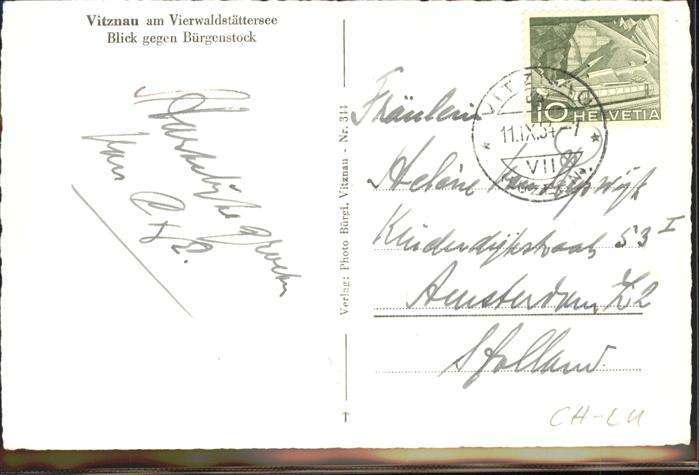 Vitznau am Vierwaldstättersee
Blick gegen Bürgenstock
Hartelijke groeten
van
Verlag: Photo Bürgi, Vitznau - Nr. 344
10 HELVETIA
VITZNAU
11.IX.54-1
VII
Fräulein
Helene
Kinderdijkstraat 53 I
Amsterdam, Z2
Holland
CH-LU